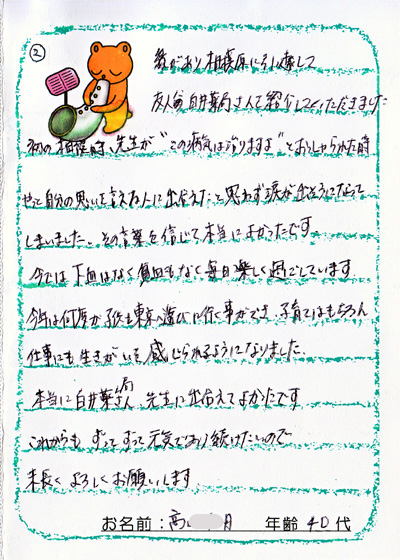 ②
縁があり相模原に引っ越して
友人に白井薬局さんを紹介していただきました
初の相談時、先生が"この病気は治りますよ"とおっしゃられた時
やっと自分の思いを言える人に出会えたと思わず涙が出そうになって
しまいました。その言葉を信じて本当によかったです。
今では下血はなく貧血もなく毎日楽しく過ごしています
今年は何度か子供と東京へ遊びに行く事ができ、子育てはもちろん
仕事にも生きがいを感じられるようになりました。
本当に白井薬局さん、先生に出会えてよかったです
これからも ずっとずっと元気であり続けたいので
末長く よろしくお願いします。
お名前：高 月 年齢 40代